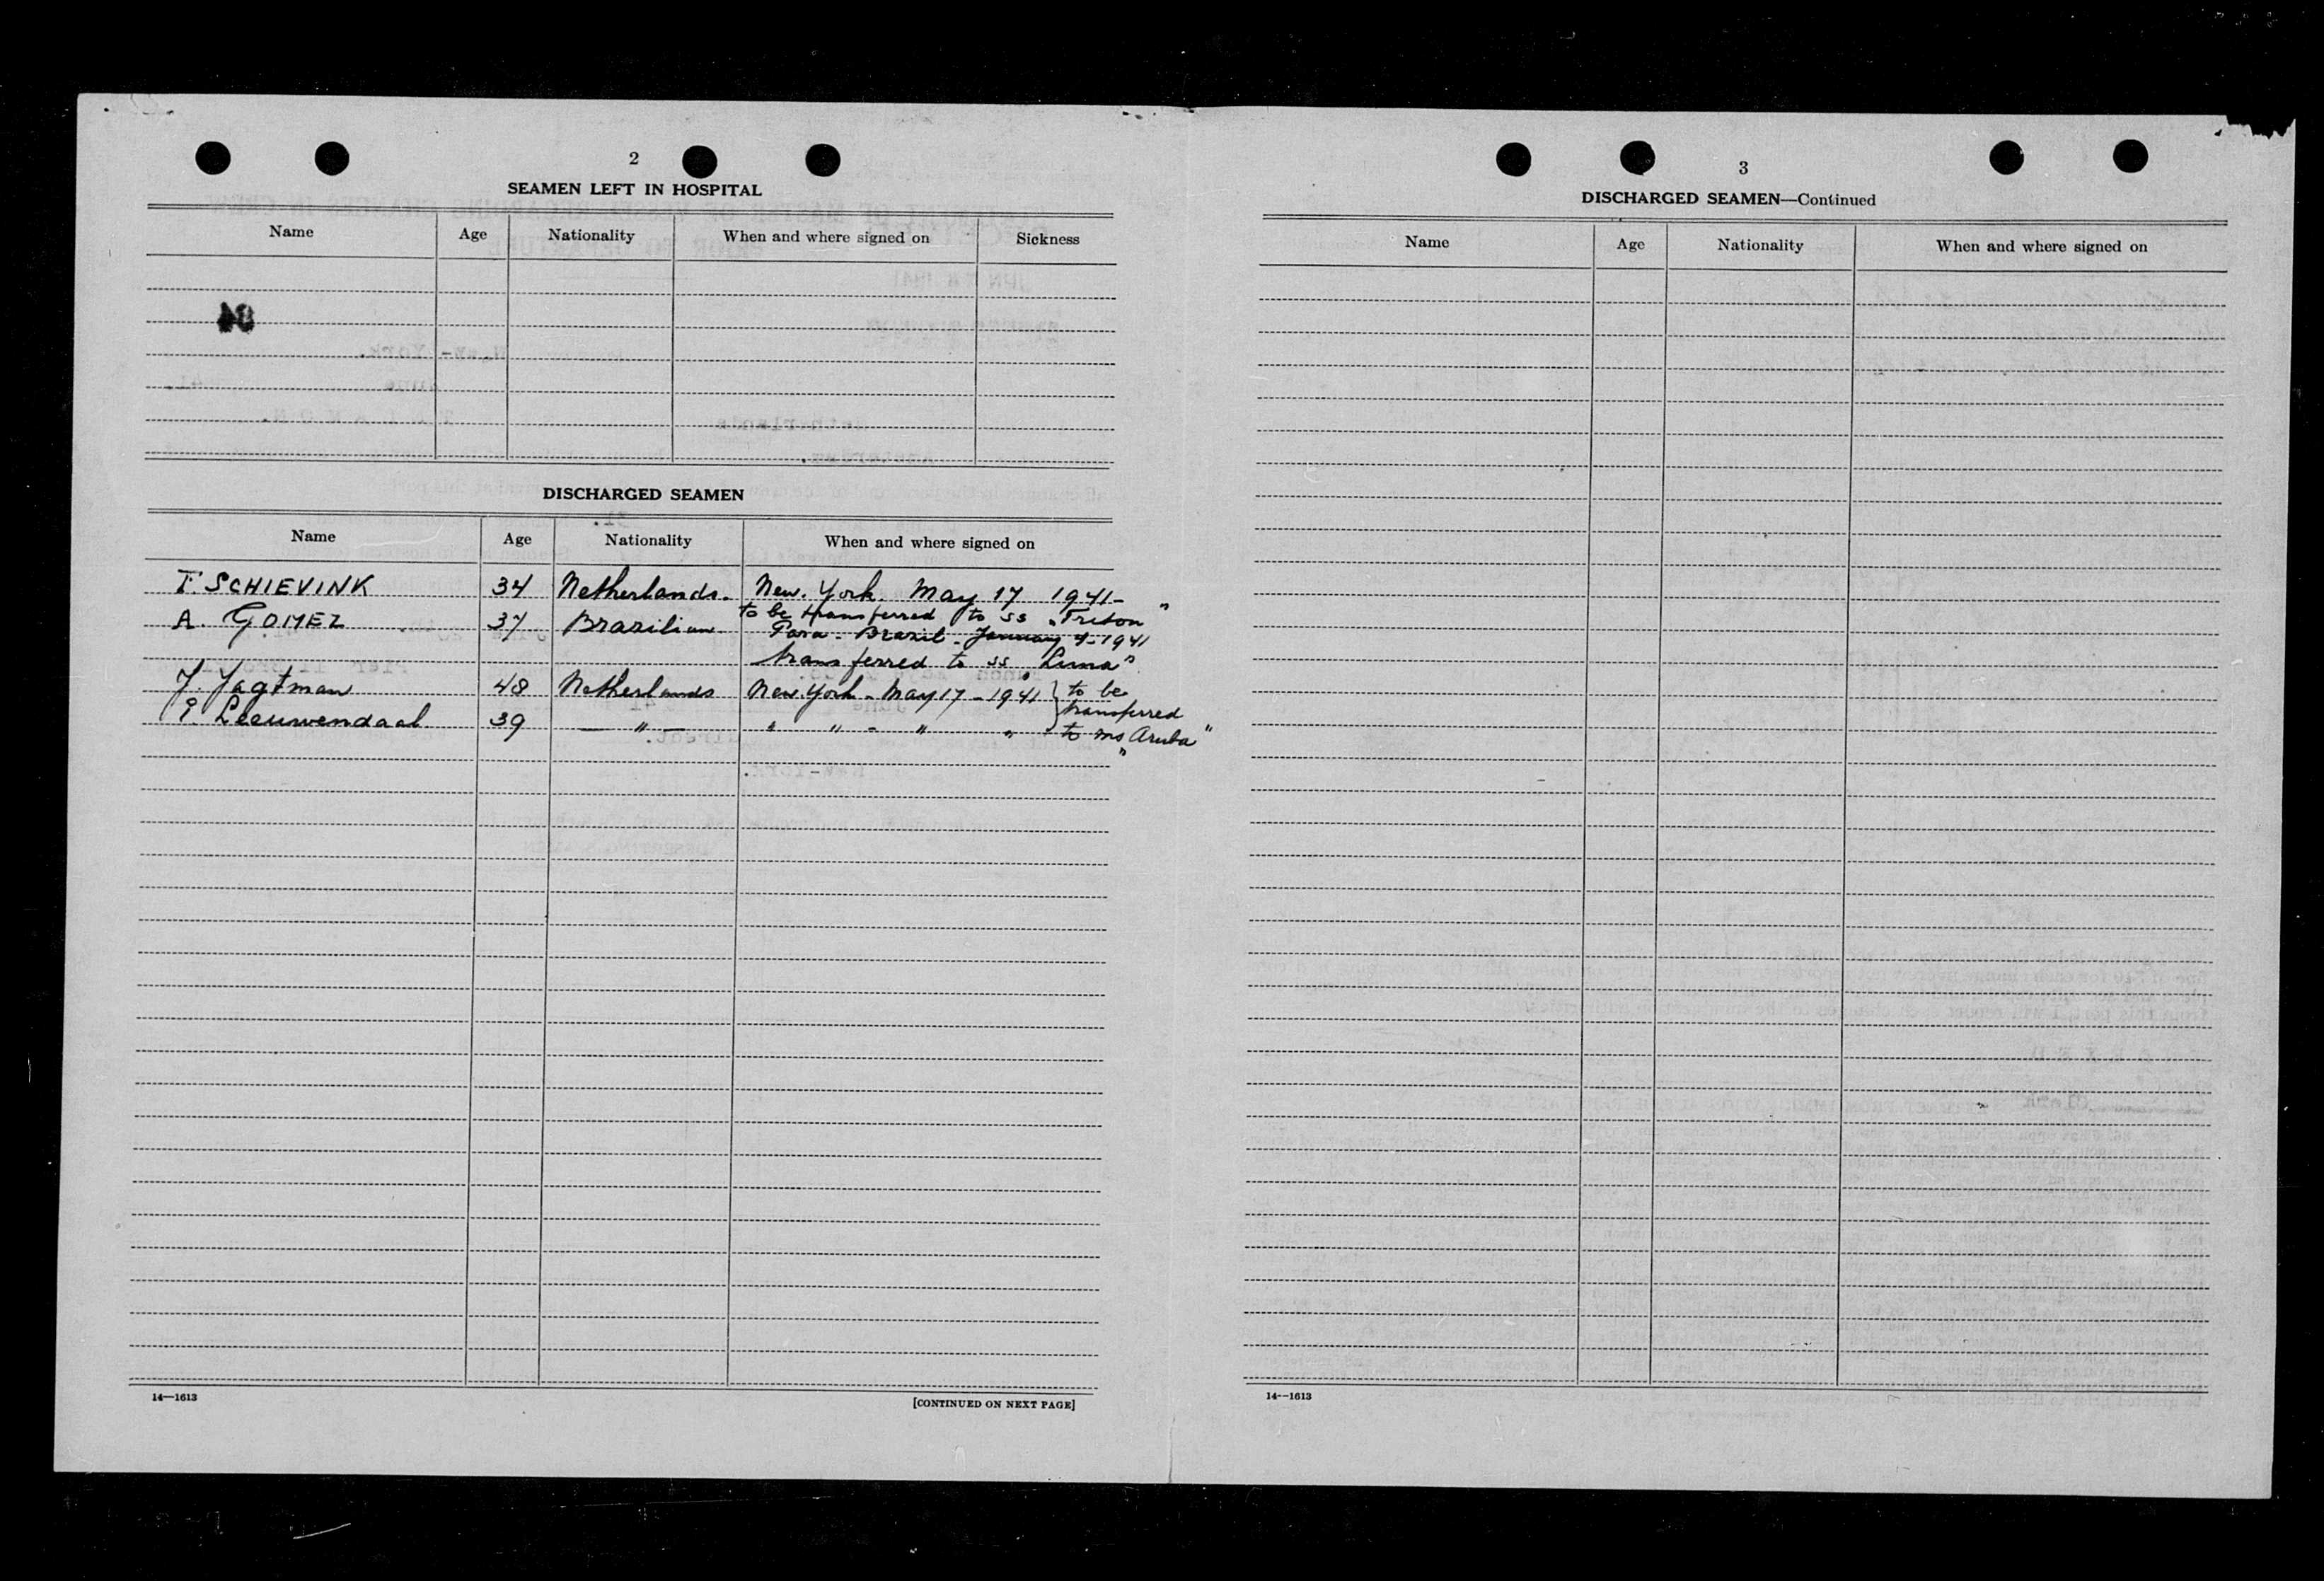 2
SEAMEN LEFT IN HOSPITAL
Name Age Nationality When and where signed on Sickness
DISCHARGED SEAMEN
Name Age Nationality When and where signed on
T. SCHIEVINK 34 Netherlands. New. York. May 17 1941-
to be transferred to ss „Triton"
A. GOMEZ 37 Brazilian Para - Brazil - January 4-1941
transferred to ss Luna"
J. Jagtman 48 Netherlands New. York - May 17 - 1941 } to be
transferred
Leeuwendaal 39 — " — " " - " " to ms „Aruba"
14—1613 [CONTINUED ON NEXT PAGE]
3
DISCHARGED SEAMEN—Continued
Name Age Nationality When and where signed on
14—1613